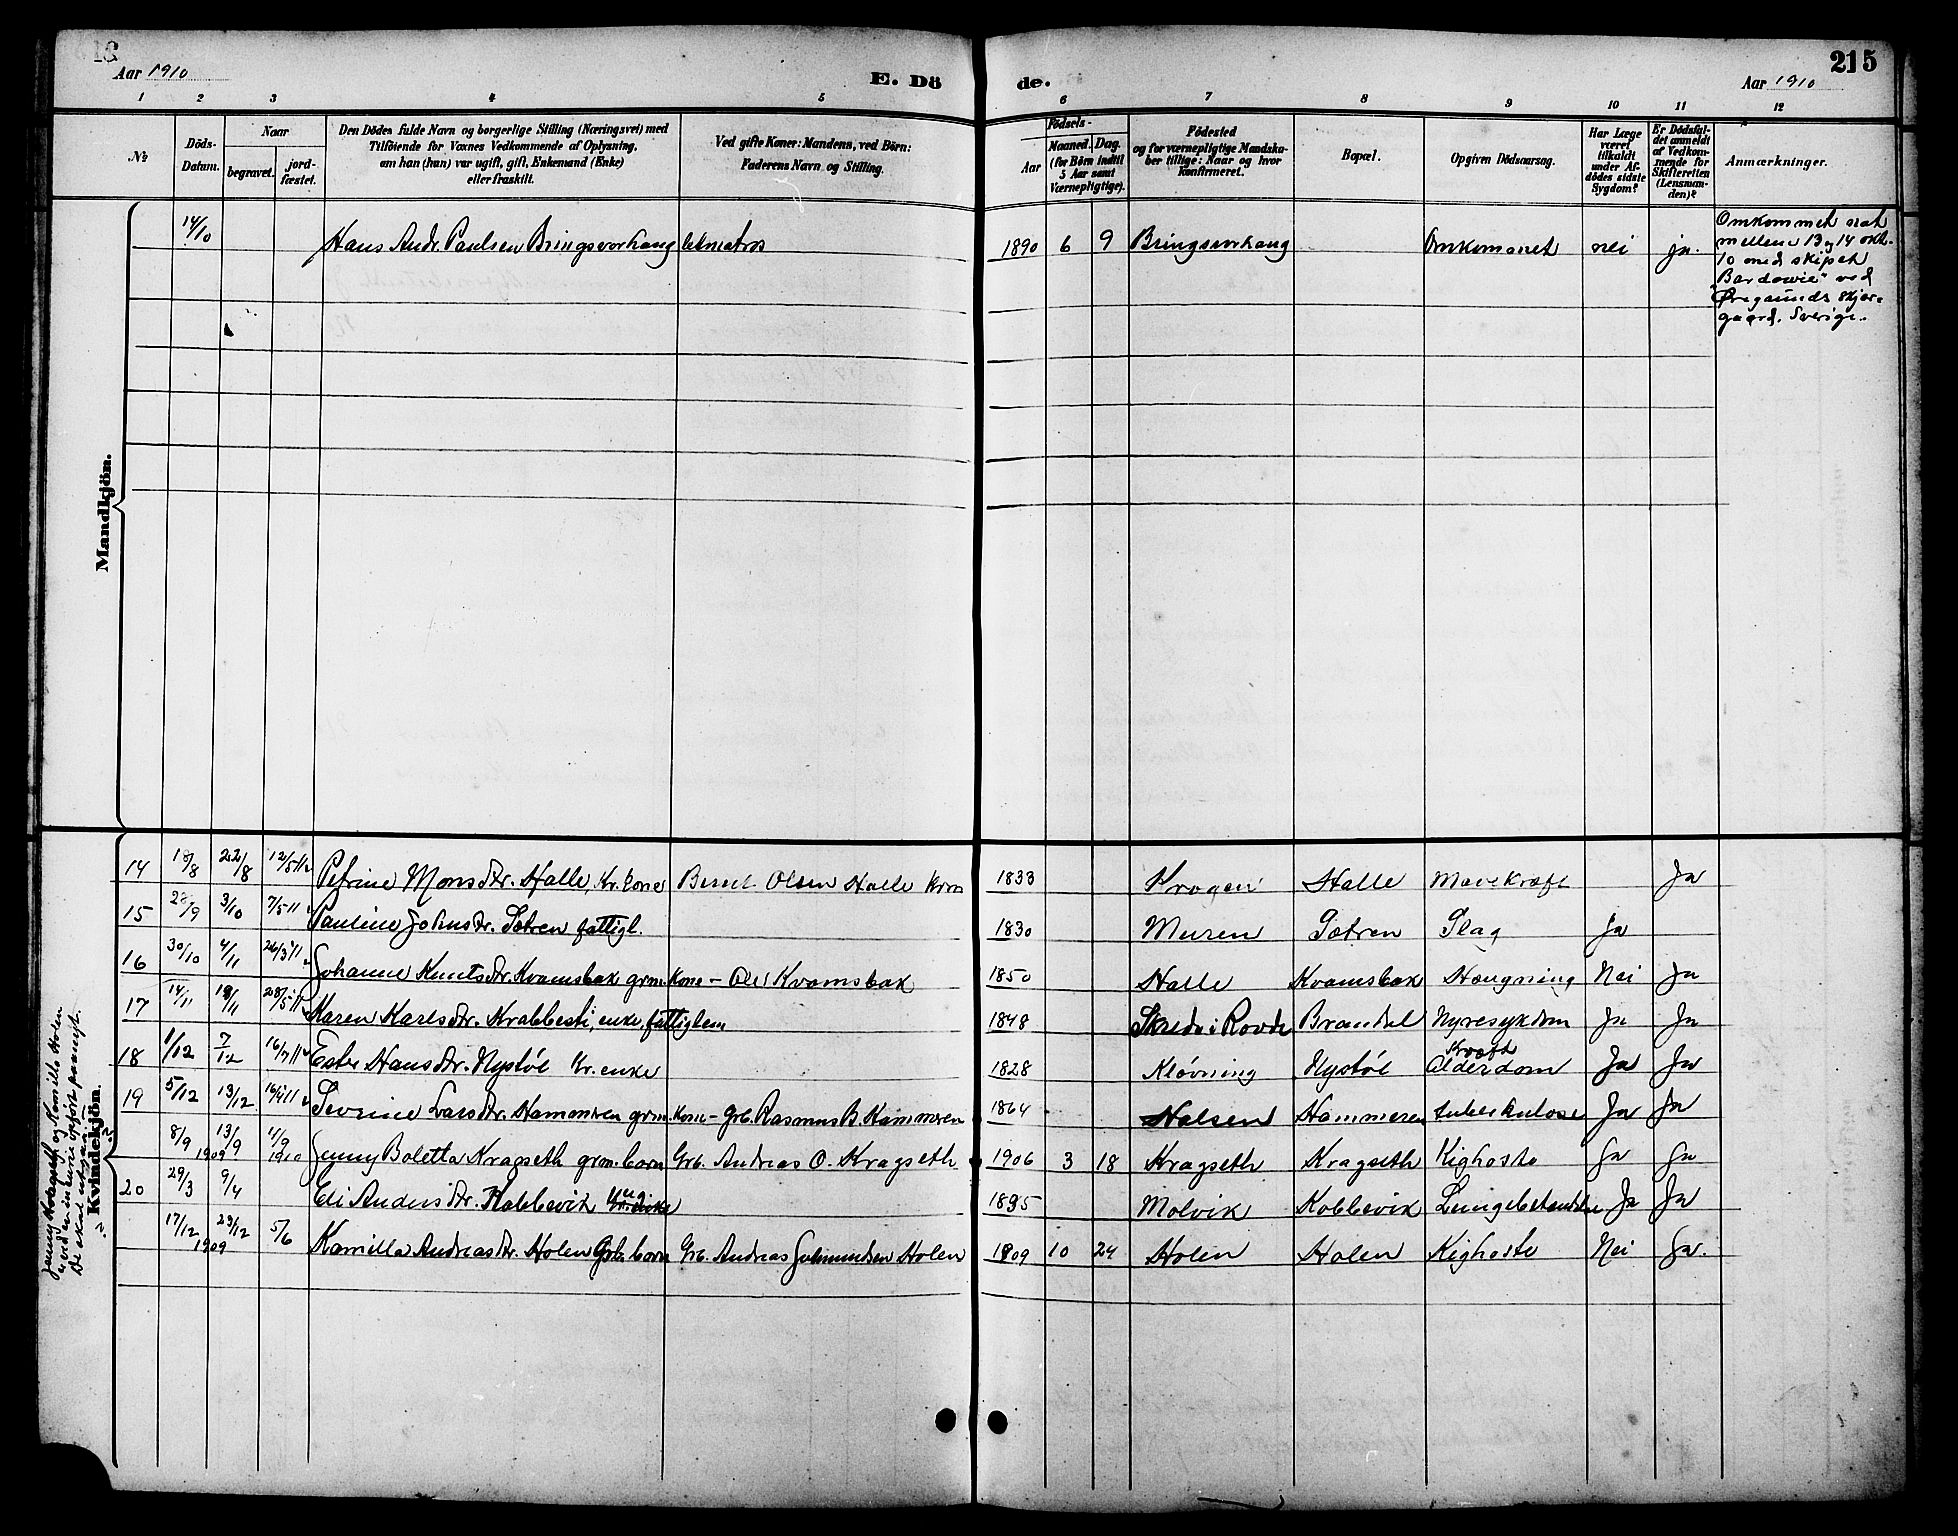 Aar 1910
E. Dö
de.
Aar 1910
215
1 2 3 4 5 6 7 8 9 10 11 12
№
Döds-
Datum.
Naar
begravet.
jord-
fæstet.
Den Dödes fulde Navn og borgerlige Stilling (Næringsvei) med
Tilföiende for Voxnes Vedkommende af Oplysning,
om han (hun) var ugift, gift, Enkemand (Enke)
eller fraskilt.
Ved gifte Koner: Mandens, ved Börn:
Faderens Navn og Stilling.
Födsels-
Aar
Maaned. Dag.
(for Börn indtil
5 Aar samt
Værnepligtige).
Födested
og for værnepligtige Mandska-
ber tillige: Naar og hvor
konfirmeret.
Bopæl.
Opgiven Dödsaarsag.
Har Læge
været
tilkaldt
under Af-
dödes sidste
Sygdom?
Er Dödsfal-
det anmeldt
af Vedkom-
mende for
Skifteretten
(Lensman-
den)?
Anmærkninger.
Mandkjön.
14/10 Hans Andr. Paulsen Bringsvorhaug letmatros 1890 6 9 Bringsvorhaug Omkommet nei ja.
Omkommet nat
mellem 13 og 14 okt.
10 med skipet
"Bardowie" ved
Øregrunds skjær-
gaard, Sverige.
Kvindekjön.
14 18/8 22/8 12/5 11 Petrine Monsdtr. Halle, kr. kone Bernt Olsen Halle 1833 Krogen Halle Mavekræft Ja
15 28/9 3/10 7/5 11 Pauline Johnsdr. Sætren fattigl. 1830 Muren Sætren Slag Ja
16 30/10 4/11 26/3 11 Johanne Knutsdtr. Kvamsbak grm. kone - Ole Kvamsbak 1850 Halle Kvamsbak Hængning Nei Ja
17 14/11 19/11 28/5 11 Karen Karlsdtr. Krabbesti, enke, fattiglem 1848 Skredo i Rovde Brandal Nyresykdom Ja Ja
18 1/12 7/12 16/7 11 Ester Hansdtr. Nystøl kr. enke 1828 Kløvning Nystøl Kræft Alderdom Ja Ja
19 5/12 13/12 Severine Larsdtr. Hammeren grm. kone - grb. Rasmus B. Hammeren 1864 Halsen Hammeren tuberkulose Ja Ja
8/9 1909 13/9 11/9 1910 Jenny Boletta Kragseth grm. barn Grb. Andreas O. Kragseth 1906 3 18 Kragseth Kragseth Kighoste Ja Ja
20 29/3 9/4 Eli Andersdtr. Kobbevik 1895 Molvik Kobbevik Lungebetændelse Ja Ja
17/12 1909 29/12 5/6 Kamilla Andreasdtr. Holen Grb. barn Grb. Andreas Gudmundsen Holen 1909 10 24 Holen Holen Kighoste Nei Ja.
Jenny Kragseth og Kamilla Holen
De skal utgaa!